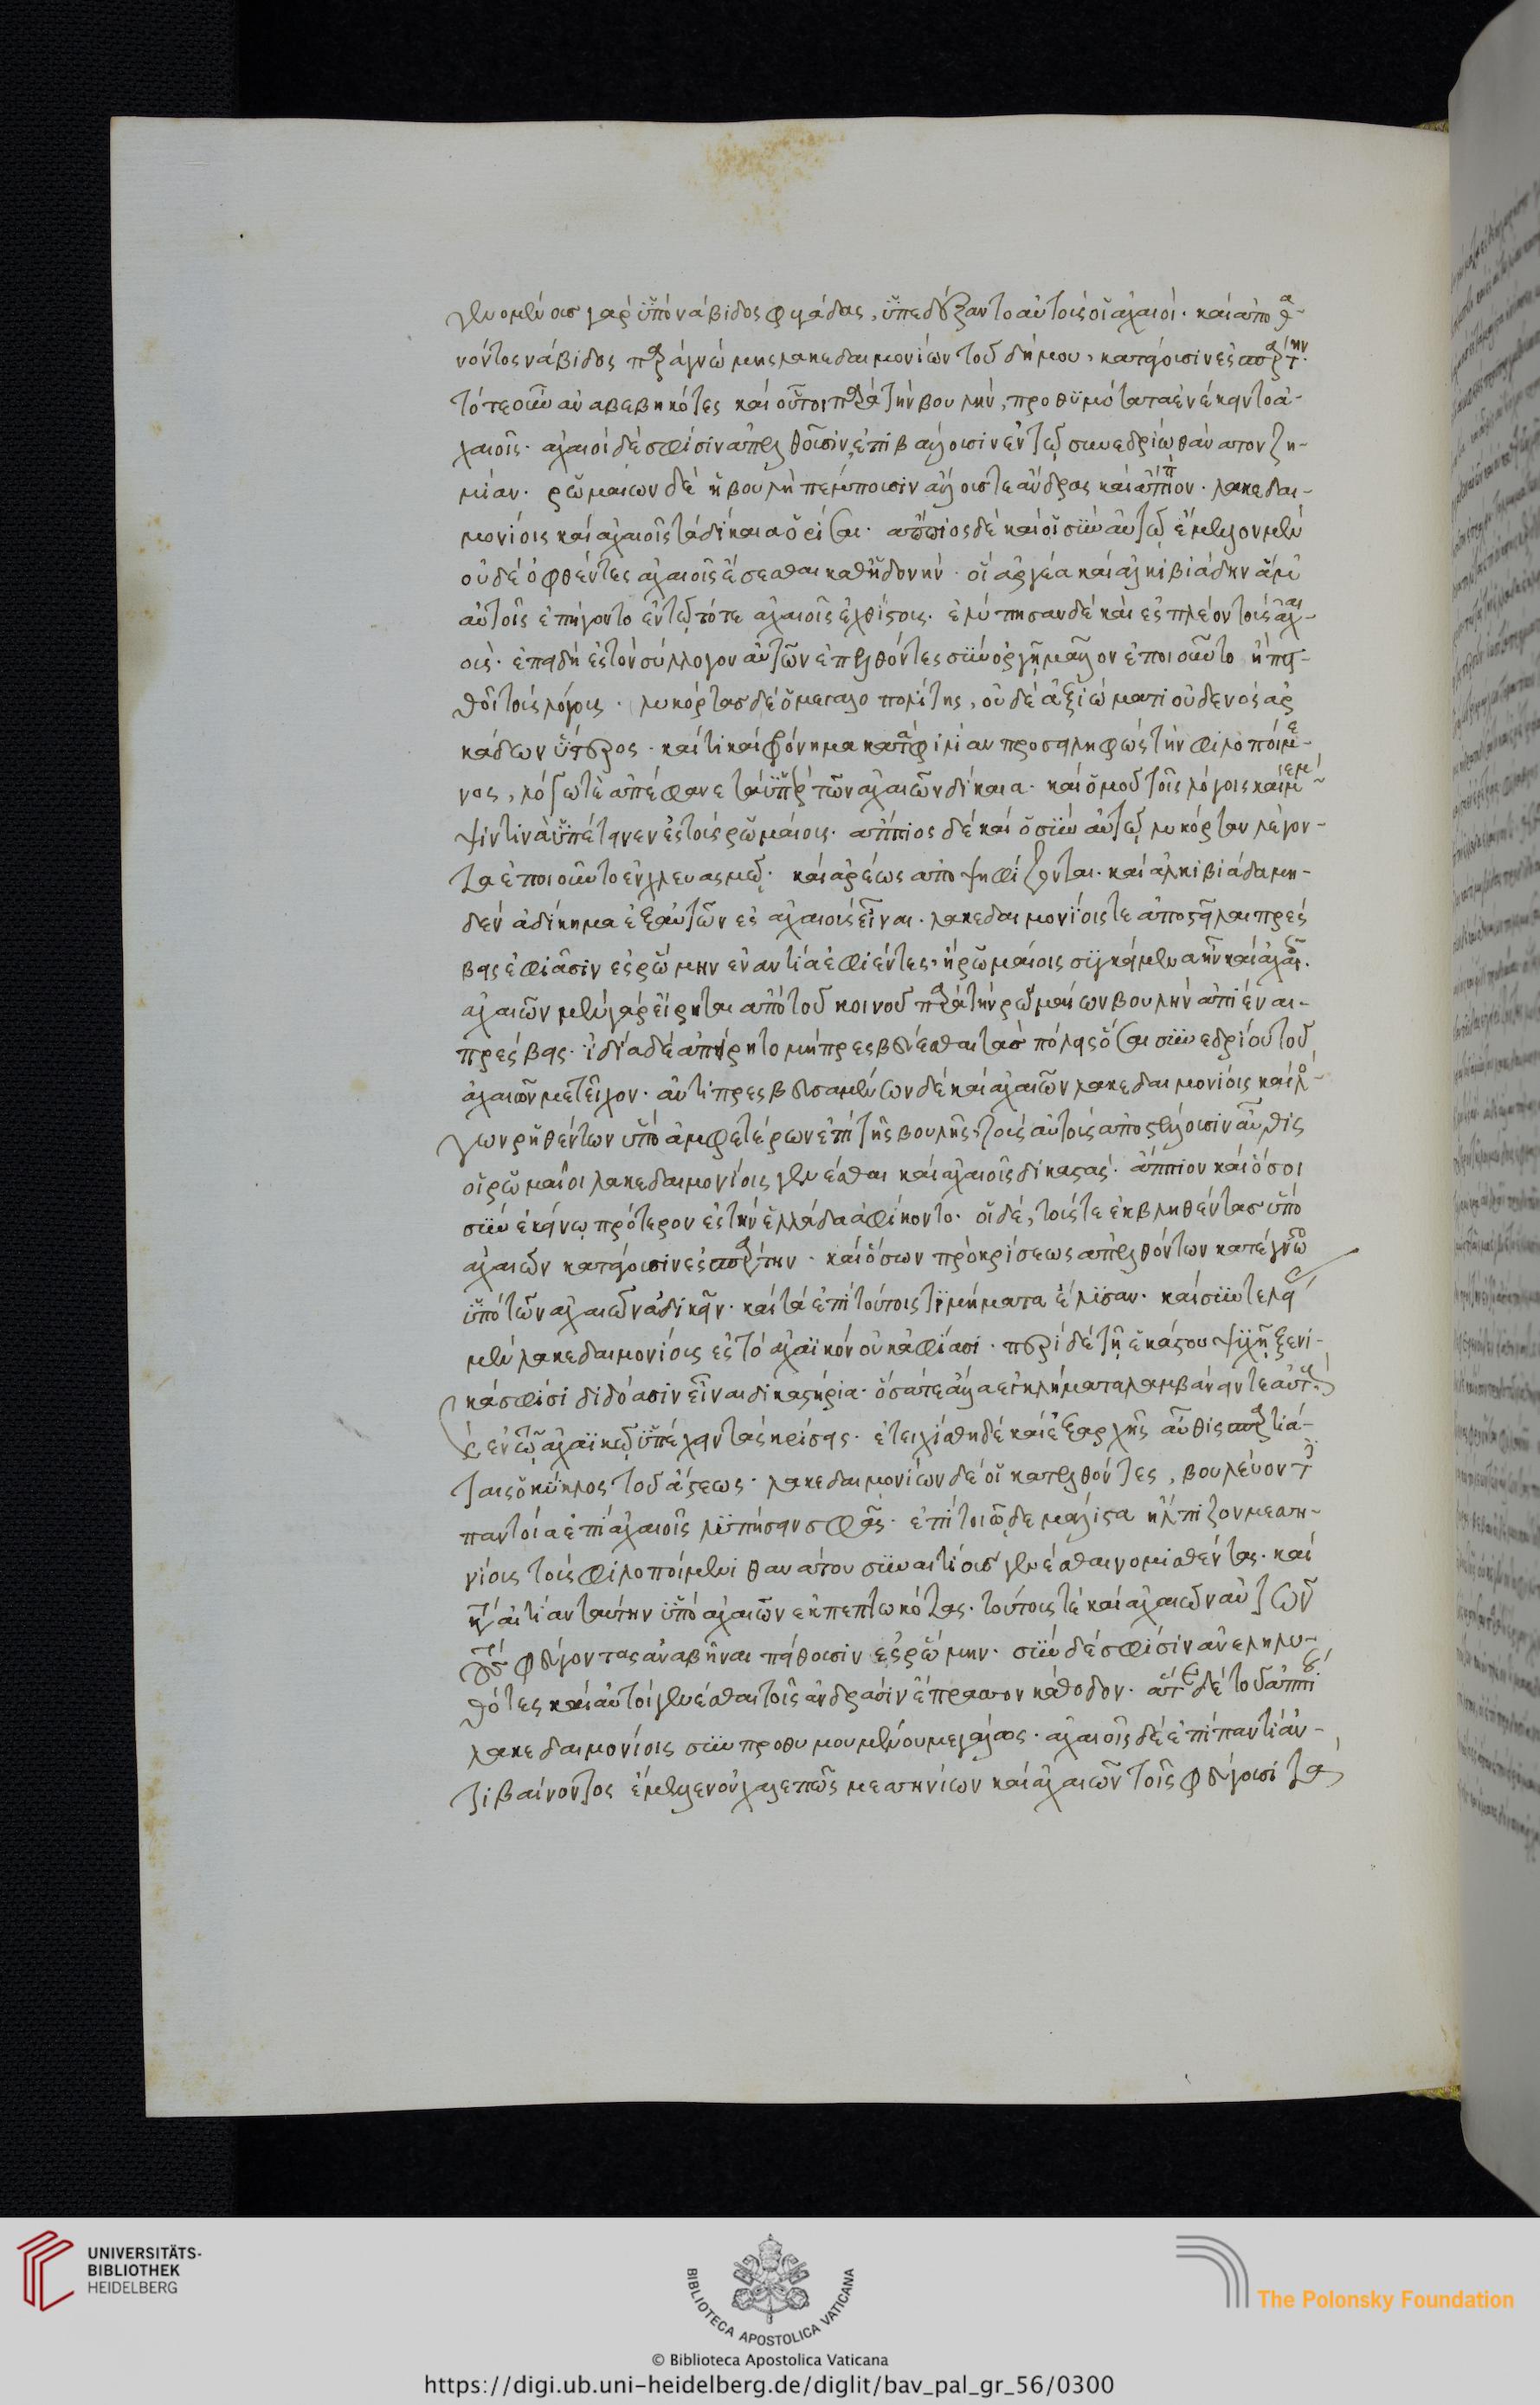 γενομένους γὰρ ὑπὸ νάβιδος φυγάδας, ὑπεδέξαντο αὐτοὺς οἱ ἀχαιοί. καὶ ἀποθα-
νόντος νάβιδος παρὰ γνώμης λακεδαιμονίων τοῦ δήμου, κατάγουσιν ἐς σπάρτην.
τότε οὖν ἀναβεβηκότες καὶ οὗτοι παρὰ τὴν βουλὴν, προθυμότατα ἐνέκειντο ἀ-
χαιοῖς. ἀχαιοὶ δὲ σφίσιν ἀπελθοῦσιν, ἐπιβάλλουσιν ἐν τῷ συνεδρίῳ θάνατον ζη-
μίαν. ῥωμαίων δὲ ἡ βουλὴ πέμπουσιν ἄλλους τε ἄνδρας καὶ ἄππιον. λακεδαι-
μονίοις καὶ ἀχαιοῖς τὰ δίκαια ὁρίσαι. ἄππιος δὲ καὶ οἱ σὺν αὐτῷ ἔμελλον μὲν
οὐδὲ ὀφθέντες ἀχαιοῖς ἔσεσθαι καθ' ἡδονήν. οἳ ἀργέα καὶ ἀλκιβιάδην ἅμα
αὐτοῖς ἐπήγοντο ἐν τῷ τότε ἀχαιοῖς ἐχθίστους. ἐλύπησαν δὲ καὶ ἐς πλέον τοὺς ἀχαι-
οὺς. ἐπειδὴ ἐς τὸν σύλλογον αὐτῶν ἐπελθόντες σὺν ὀργῇ μᾶλλον ἐποιοῦντο ἢ πει-
θοῖ τοὺς λόγους. λυκόρτας δὲ ὁ μεγαλοπολίτης, οὐδὲ ἀξιώματι οὐδενὸς ἀρ
κάδων ὕστερος. καί τι καὶ φρόνημα κατὰ φιλίαν προσειληφὼς τὴν φιλοποίμε-
νος, λόγῳ τε ἀπέφαινε τὰ ὑπὲρ τῶν ἀχαιῶν δίκαια. καὶ ὁμοῦ τοῖς λόγοις καὶ μέμ-
ψιν τινὰ ὑπέτεινεν ἐς τοὺς ῥωμαίους. ἄππιος δὲ καὶ ὁ σὺν αὐτῷ λυκόρταν λέγον-
τα ἐποιοῦντο ἐν χλευασμῷ. καὶ ἀρέως ἀποψηφίζονται. καὶ ἀλκιβιάδα μη-
δὲν ἀδίκημα ἐξ αὐτῶν ἐς ἀχαιοὺς εἶναι. λακεδαιμονίοις τε ἀποστεῖλαι πρέσ
βεις ἐφιᾶσιν ἐς ῥώμην ἐναντία ἐφιέντες, ἢ ῥωμαίοις συγκείμενα ἦν καὶ ἀχαιοῖς.
ἀχαιῶν μὲν γὰρ εἴρηται ἀπὸ τοῦ κοινοῦ παρὰ τὴν ῥωμαίων βουλὴν ἀπιέναι
πρέσβεις. ἰδίᾳ δὲ ἀπείρητο μὴ πρεσβεύεσθαι τὰς πόλεις ὅσαι συνεδρίου τοῦ
ἀχαιῶν μετεῖχον. ἀντιπρεσβευσαμένων δὲ καὶ ἀχαιῶν λακεδαιμονίοις καὶ λό-
γων ῥηθέντων ὑπὸ ἀμφοτέρων ἐπὶ τῆς βουλῆς, τοὺς αὐτοὺς ἀποστέλλουσιν αὖθις
οἱ ῥωμαῖοι λακεδαιμονίοις γενέσθαι καὶ ἀχαιοῖς δικαστάς. ἄππιον καὶ ὅσοι
σὺν ἐκείνῳ πρότερον ἐς τὴν ἑλλάδα ἀφίκοντο. οἱ δὲ, τούς τε ἐκβληθέντας ὑπὸ
ἀχαιῶν κατάγουσιν ἐς σπάρτην. καὶ ὅσων πρὸ κρίσεως ἀπελθόντων κατέγνωστο
ὑπὸ τῶν ἀχαιῶν ἀδικεῖν. καὶ τὰ ἐπὶ τούτοις τιμήματα ἔλυσαν. καὶ συντελεῖν
μὲν λακεδαιμονίους ἐς τὸ ἀχαϊκὸν οὐκ ἀφίασι. περὶ δὲ τῇ ἑκάστου ψυχῇ ξενι-
κά σφίσι διδόασιν εἶναι δικαστήρια. ὅσα τε ἄλλα ἐγκλήματα λαμβάνειν τε αὐτοὺς
καὶ ἐν τῷ ἀχαϊκῷ ὑπέχειν τὰς κρίσεις. ἐτειχίσθη δὲ καὶ ἐξ ἀρχῆς αὖθις σπαρτιά-
ταις ὁ κύκλος τοῦ ἄστεως. λακεδαιμονίων δὲ οἱ κατελθόντες, βουλεύοντες
παντοῖα ἐπὶ ἀχαιοῖς λυπήσειν σφᾶς. ἐπὶ τοιῷδε μάλιστα ἤλπιζον μεσση-
νίους τοὺς φιλοποίμενι θανάτου συναιτίους γενέσθαι νομισθέντας. καὶ
κατ' αἰτίαν ταύτην ὑπὸ ἀχαιῶν ἐκπεπτωκότας. τούτους τε καὶ ἀχαιῶν αὐτῶν
τοὺς φεύγοντας ἀναβῆναι πείθουσιν ἐς ῥώμην. σὺν δέ σφισιν ἀνεληλυ-
θότες καὶ αὐτοὶ γενέσθαι τοῖς ἀνδράσιν ἔπρασσον κάθοδον. ἅτε δὲ τοῦ ἀππίου
λακεδαιμονίοις συμπροθυμουμένου μεγάλως. ἀχαιοῖς δὲ ἐπὶ παντὶ ἀν-
τιβαίνοντος ἔμελλεν οὐ χαλεπῶς μεσσηνίων καὶ ἀχαιῶν τοῖς φεύγουσι τὰ
UNIVERSITÄTS-
BIBLIOTHEK
HEIDELBERG
BIBLIOTECA APOSTOLICA VATICANA
The Polonsky Foundation
© Biblioteca Apostolica Vaticana
https://digi.ub.uni-heidelberg.de/diglit/bav_pal_gr_56/0300